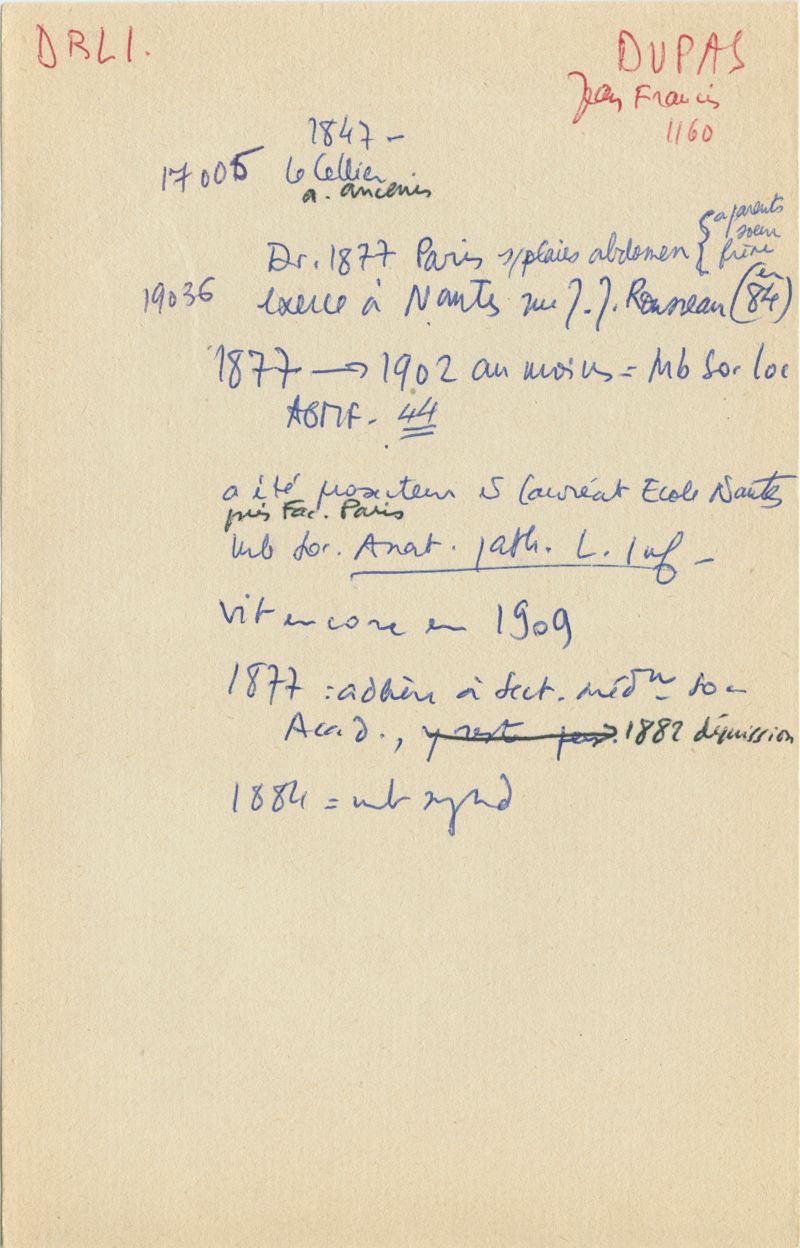 DRLI.
DUPAS
Jean Francis
1160
1847 -
17005 Le Cellier
a. ancenis
Dr. 1877 Paris s/plaies abdomen { a parents
soeur
frère
19036 exerce à Nantes rue J. J. Rousseau (en 84)
1877 → 1902 au moins = Mb Soc loc
ABMF - 44
a été prosecteur lauréat Ecole Nantes
puis Fac. Paris
mb Soc. Anat. path. L. Inf -
vit encore en 1909
1877 : adhère à Sect. médn So -
Acad., y reste 1882 démission
1884 = mb synd